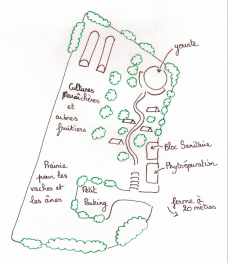 yourte
Cultures
Maraîchères
et
arbres
fruitiers
Bloc Sanitaire
Phytoépuration
Prairie
pour les
vaches et
les ânes
Petit
Parking
ferme à
20 mètres